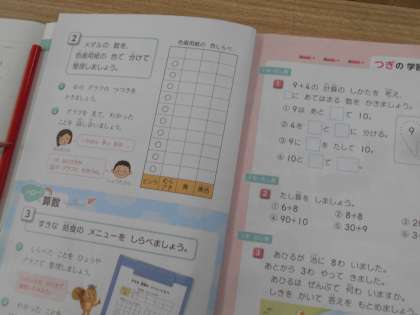 2
メダルの 数を、
色画用紙の 色で 分けて
整理しましょう。
色画用紙の 色しらべ
右の グラフの つづきを
かきましょう。
グラフを 見て、わかった
ことを 話し合いましょう。
ピンク
むらさき
青
黄色
ハロー!
算数
3
すきな 給食の メニューを しらべましょう。
しらべた ことを ひょうや
グラフで 整理しましょう。
わかった ことを
つぎの 学習
1
9+4の 計算の しかたを 考え、
□に あてはまる 数を かきましょう。
①9は あと□で 10。
②4を□と□に 分ける。
③9に□を たして 10。
④10と□で□。
2
たし算を しましょう。
①6+8
②8+8
④90+10
⑤30+9
3
あひるが 池に 8わ いました。
あとから 3わ やって きました。
あひるは ぜんぶで 何わ いますか。
しきを かいて 答えを もとめましょう。